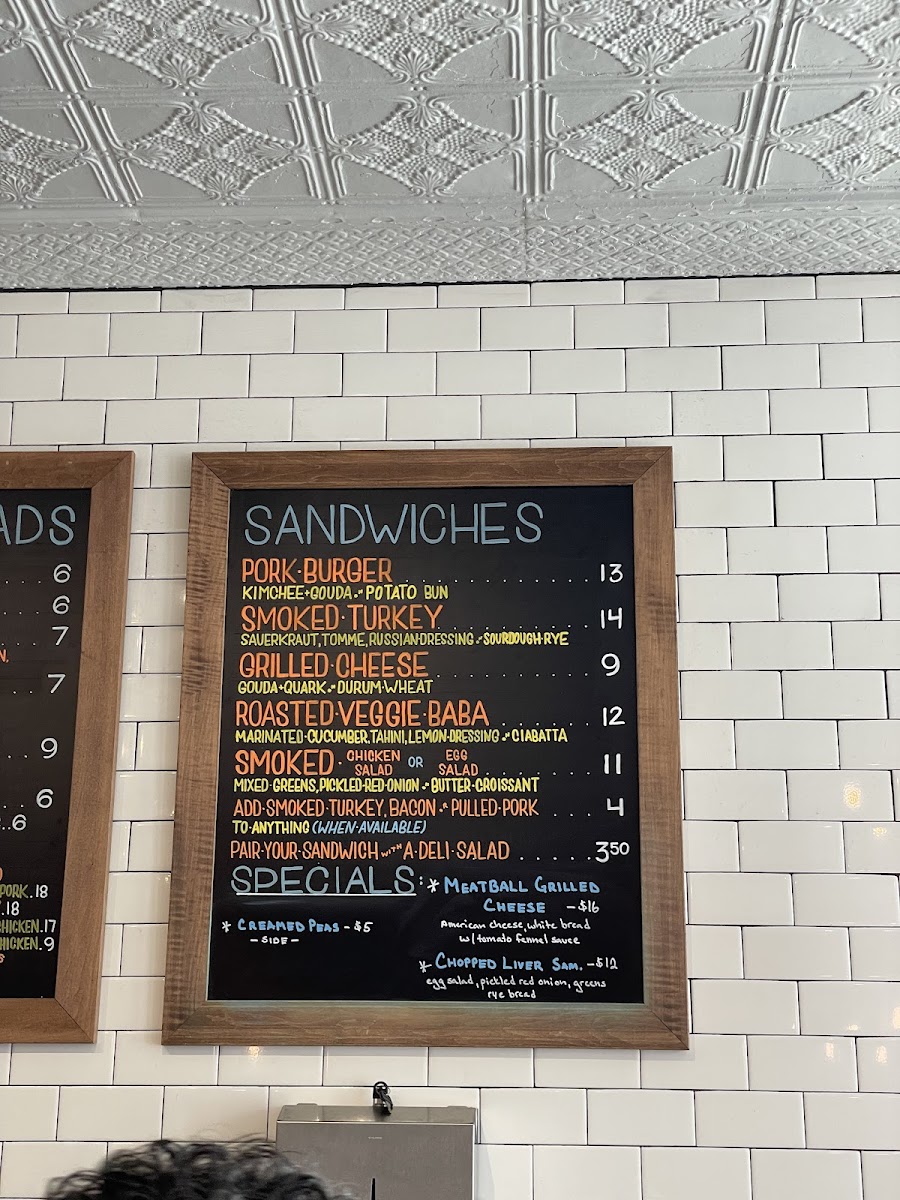 ADS
6
6
7
N.
7
9
6
..6
PORK.18
.18
CHICKEN.17
HICKEN.9
SANDWICHES
PORK·BURGER 13
KIMCHEE+GOUDA POTATO BUN
SMOKED·TURKEY 14
SAUERKRAUT, TOMME, RUSSIAN·DRESSING SOURDOUGH·RYE
GRILLED·CHEESE 9
GOUDA+QUARK DURUM·WHEAT
ROASTED·VEGGIE·BABA 12
MARINATED·CUCUMBER, TAHINI, LEMON·DRESSING CIABATTA
SMOKED· CHICKEN SALAD OR EGG SALAD 11
MIXED·GREENS, PICKLED·RED·ONION BUTTER·CROISSANT
ADD·SMOKED·TURKEY, BACON PULLED·PORK 4
TO·ANYTHING (WHEN·AVAILABLE)
PAIR·YOUR·SANDWICH WITH A·DELI·SALAD 3.50
SPECIALS:
* CREAMED PEAS - $5
- SIDE -
* MEATBALL GRILLED
CHEESE - $16
American cheese, white bread
w/ tomato fennel sauce
* CHOPPED LIVER SAM. - $12
egg salad, pickled red onion, greens
rye bread